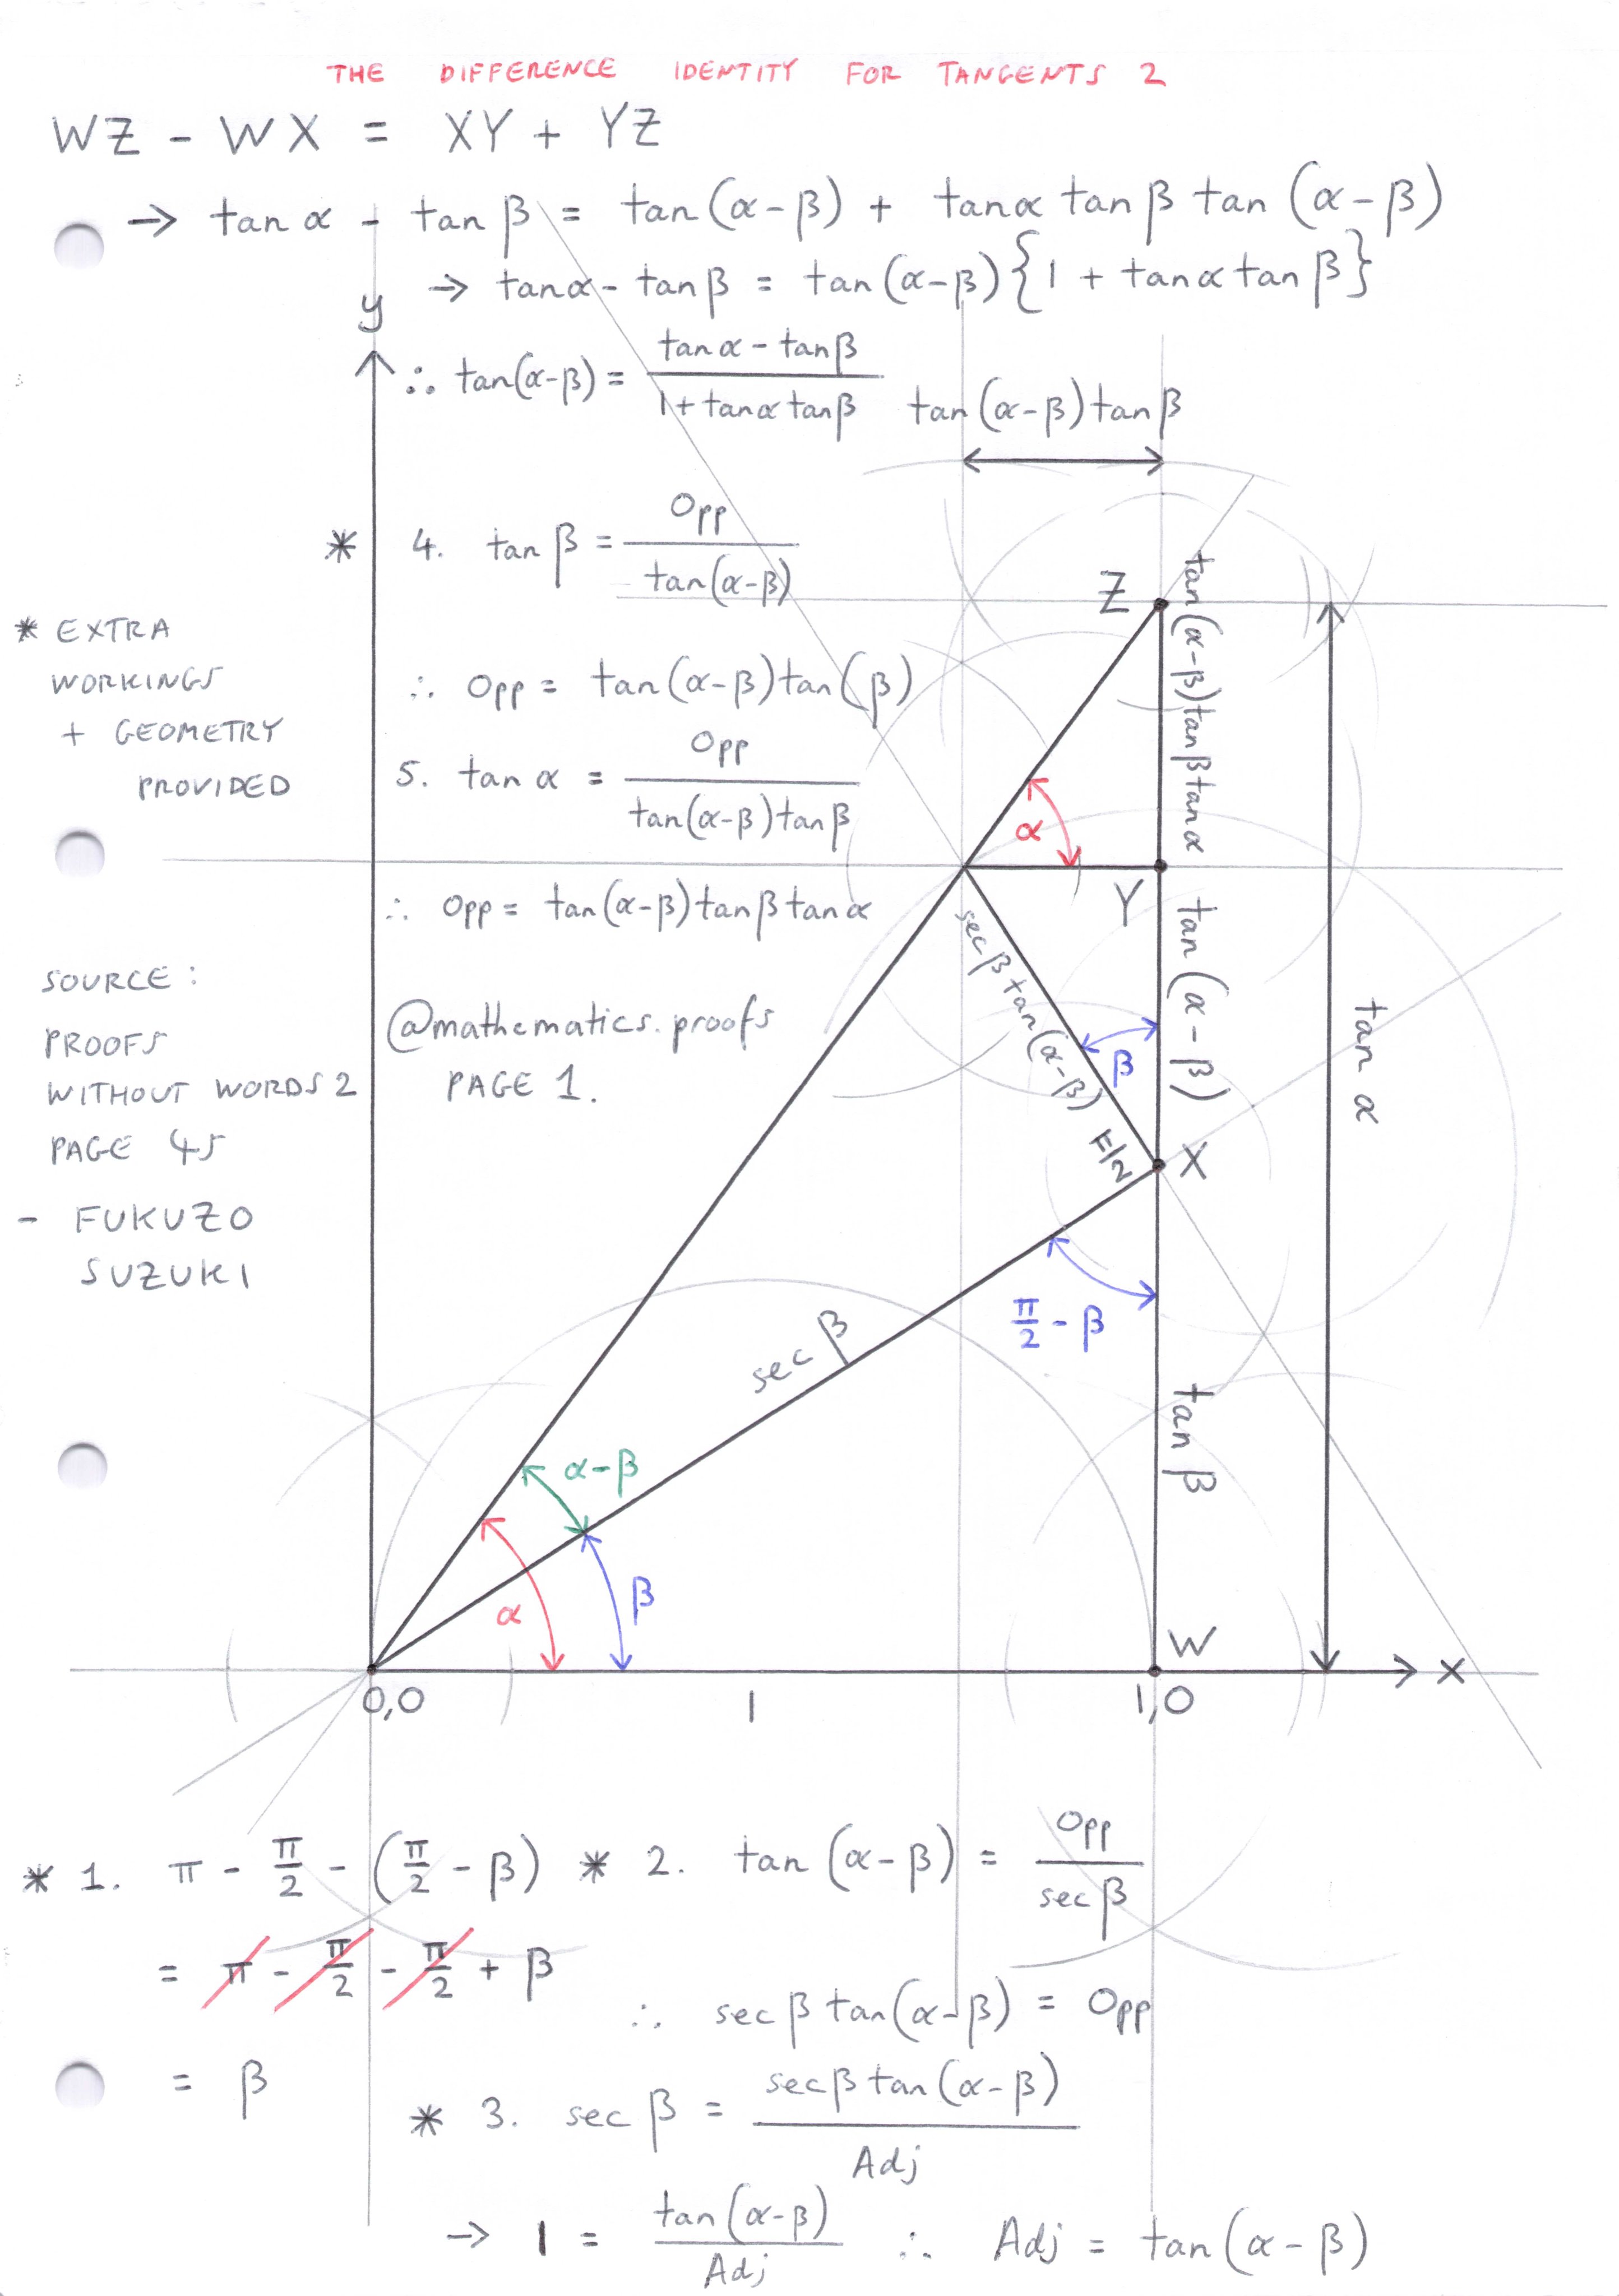 THE DIFFERENCE IDENTITY FOR TANGENTS 2
WZ - WX = XY + YZ
→ tan α - tan β = tan(α-β) + tanα tan β tan (α-β)
→ tanα - tan β = tan(α-β){1 + tanα tan β}
y
∴ tan(α-β) = (tan α - tan β)/(1+tanα tanβ)
tan(α-β)tan β
* 4. tan β = Opp/tan(α-β)
∴ Opp = tan(α-β)tan(β)
5. tan α = Opp/(tan(α-β)tan β)
∴ Opp = tan(α-β)tan β tan α
* EXTRA
WORKINGS
+ GEOMETRY
PROVIDED
SOURCE:
PROOFS
WITHOUT WORDS 2
PAGE 45
- FUKUZO
SUZUKI
@mathematics.proofs
PAGE 1.
Z
tan(α-β)tanβtanα
α
Y
tan(α-β)
sec β tan(α-β)
β
π/2
X
tan α
sec β
π/2 - β
tan β
α-β
α
β
W
x
0,0
1
1,0
* 1. π - π/2 - (π/2 - β)
= π - π/2 - π/2 + β
= β
* 2. tan (α-β) = Opp/sec β
∴ sec β tan(α-β) = Opp
* 3. sec β = sec β tan(α-β)/Adj
→ 1 = tan(α-β)/Adj ∴ Adj = tan(α-β)